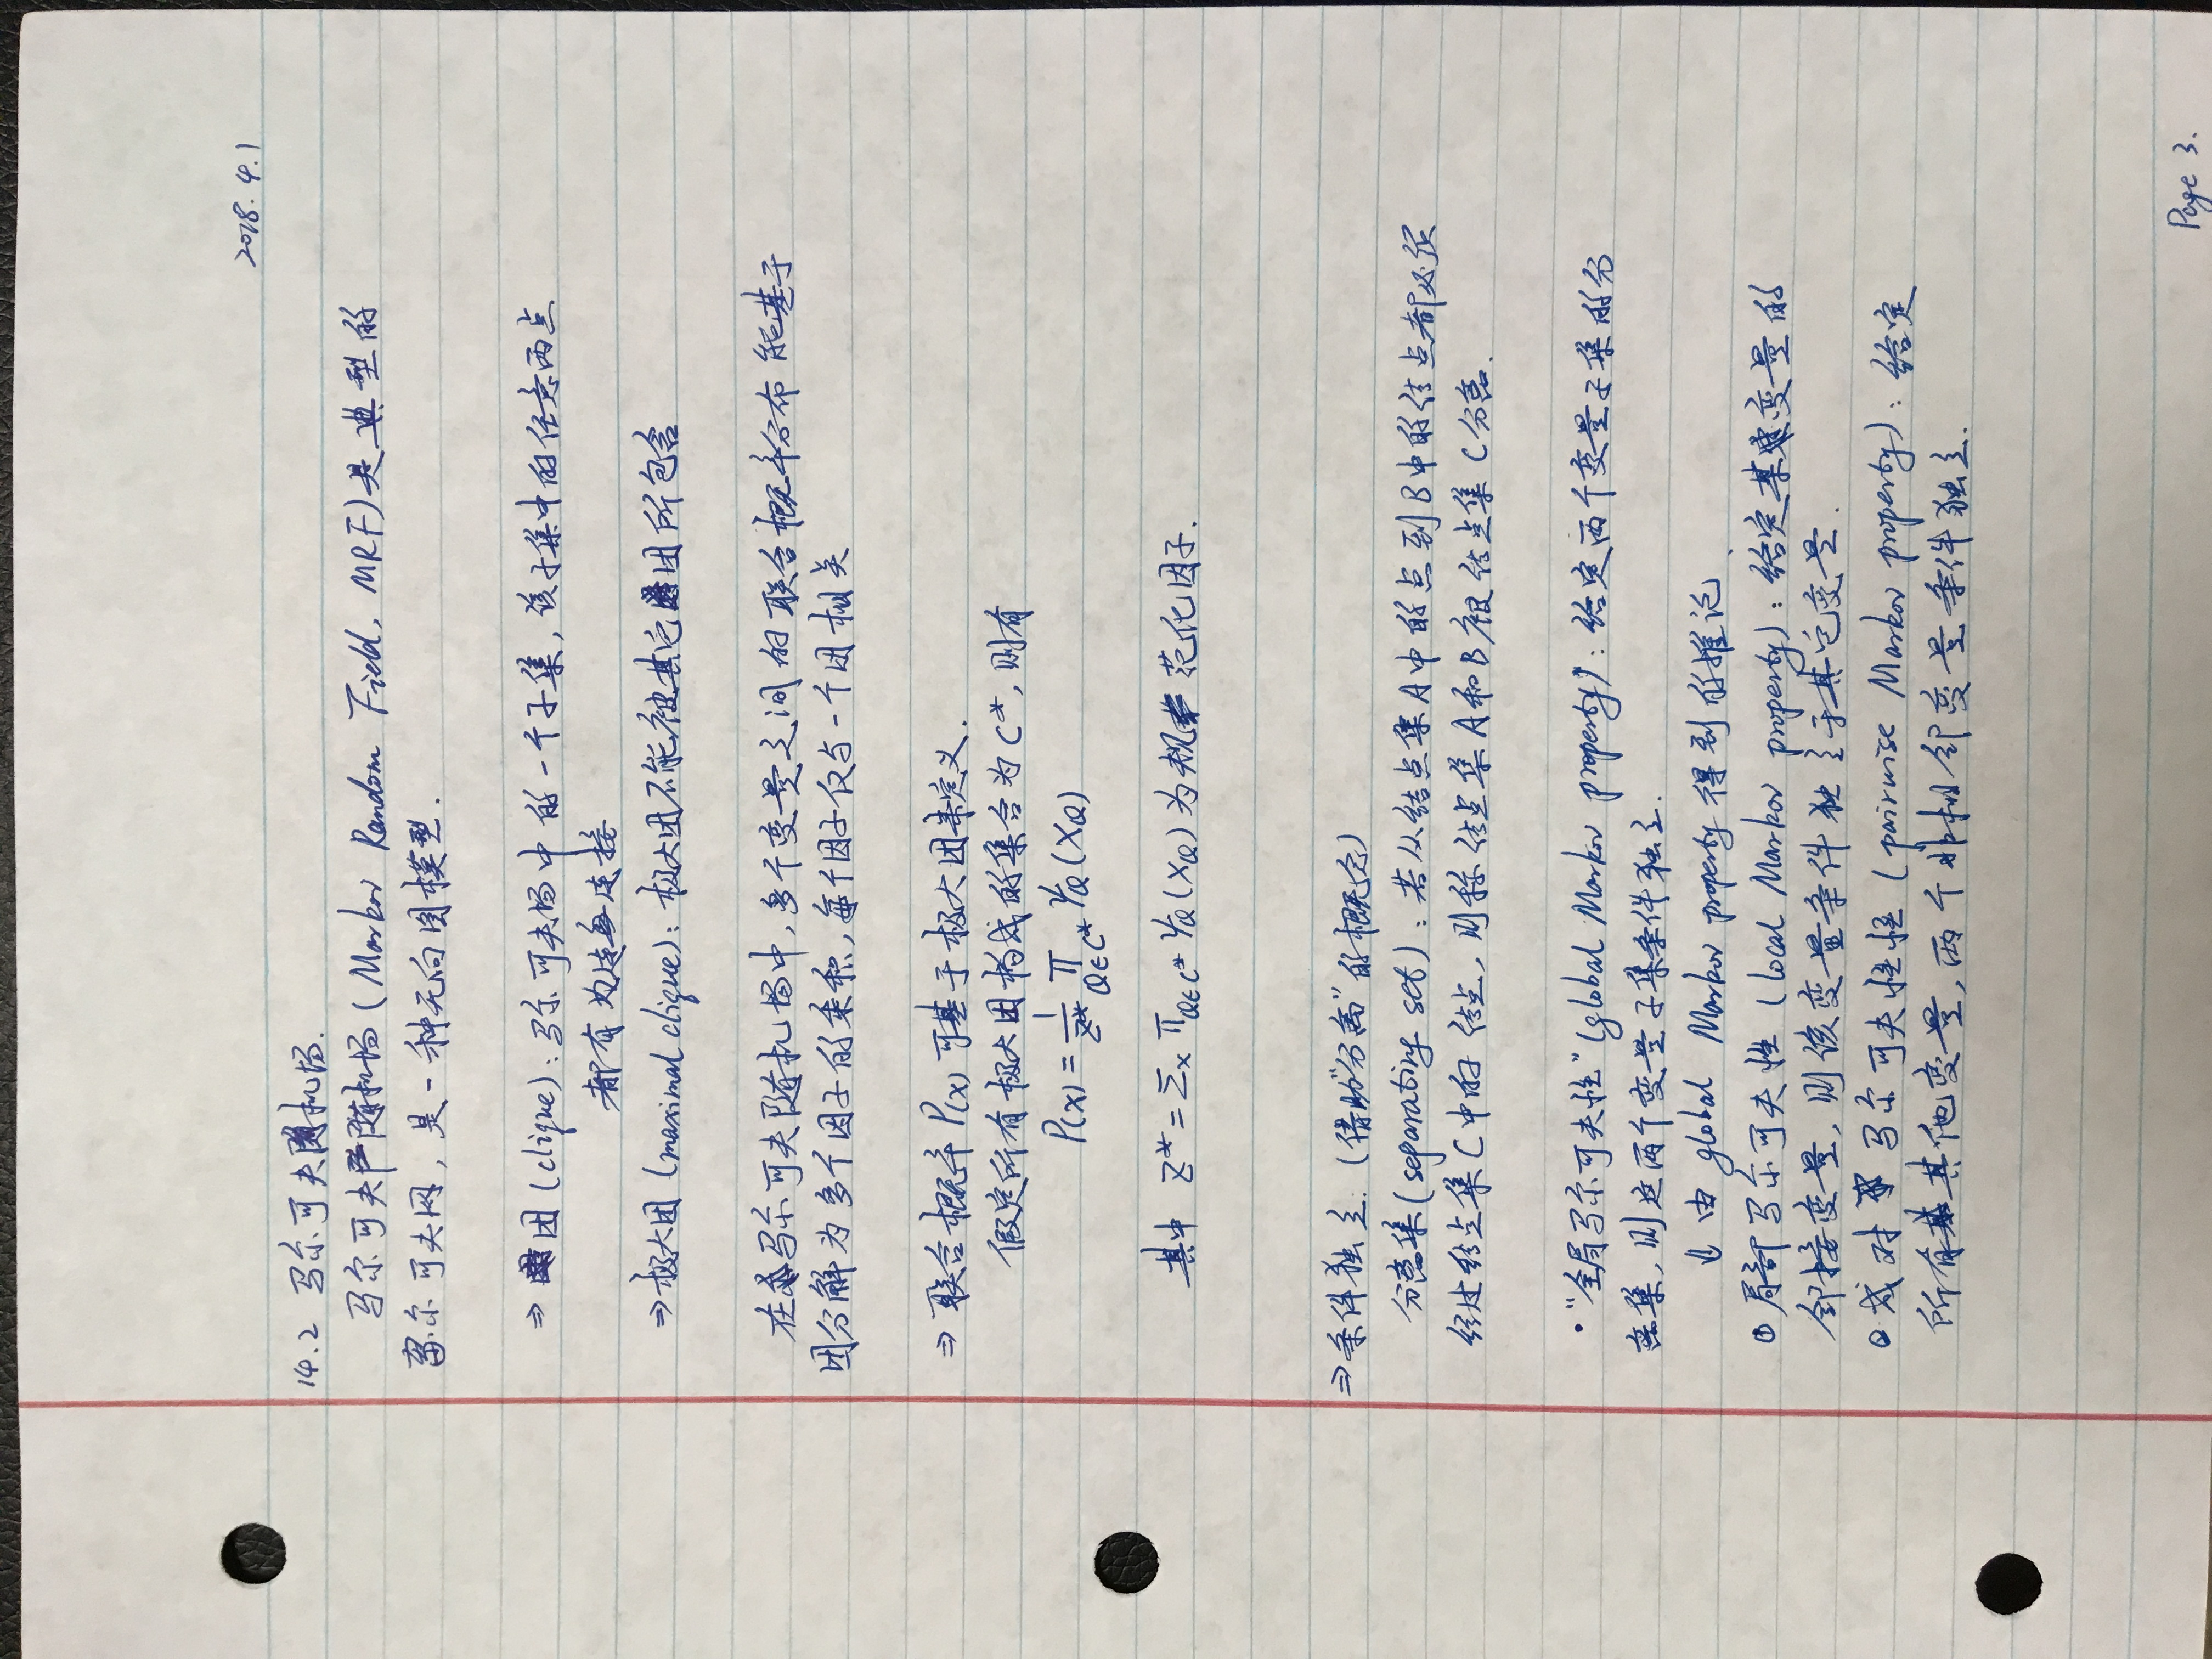 2018.4.1
14.2 马尔可夫随机场.
马尔可夫随机场(Markov Random Field, MRF)是典型的
马尔可夫网, 是一种无向图模型.
⇒ 团(clique): 马尔可夫场中的一个子集, 该子集中的任意两点
都有边连接
⇒极大团 (maximal clique): 极大团不能被其它团所包含
在马尔可夫随机场中, 多个变量之间的联合概率分布能基于
团分解为多个因子的乘积, 每个因子仅与一个团相关
⇒ 联合概率 P(x) 可基于极大团来定义.
假定所有极大团构成的集合为 C*, 则有
P(x) = 1/Z* ∏_{Q∈C*} ψ_Q (X_Q)
其中 Z* = Σ_x ∏_{Q∈C*} ψ_Q (X_Q) 为规范化因子.
⇒条件独立. (借助"分离"的概念)
分离集(separating set): 若从结点集A中的点到B中的结点都必须
经过结点集C中的结点, 则称结点集A和B被结点集C分离.
·"全局马尔可夫性"(global Markov property): 给定两个变量子集的分
离集, 则这两个变量子集条件独立.
⇓ 由 global Markov property 得到的推论
① 局部马尔可夫性 (local Markov property): 给定某变量的
邻接变量, 则该变量条件独立于其它变量.
② 成对马尔可夫性性 (pairwise Markov property): 给定
所有其他变量, 两个非相邻变量条件独立.
Page 3.